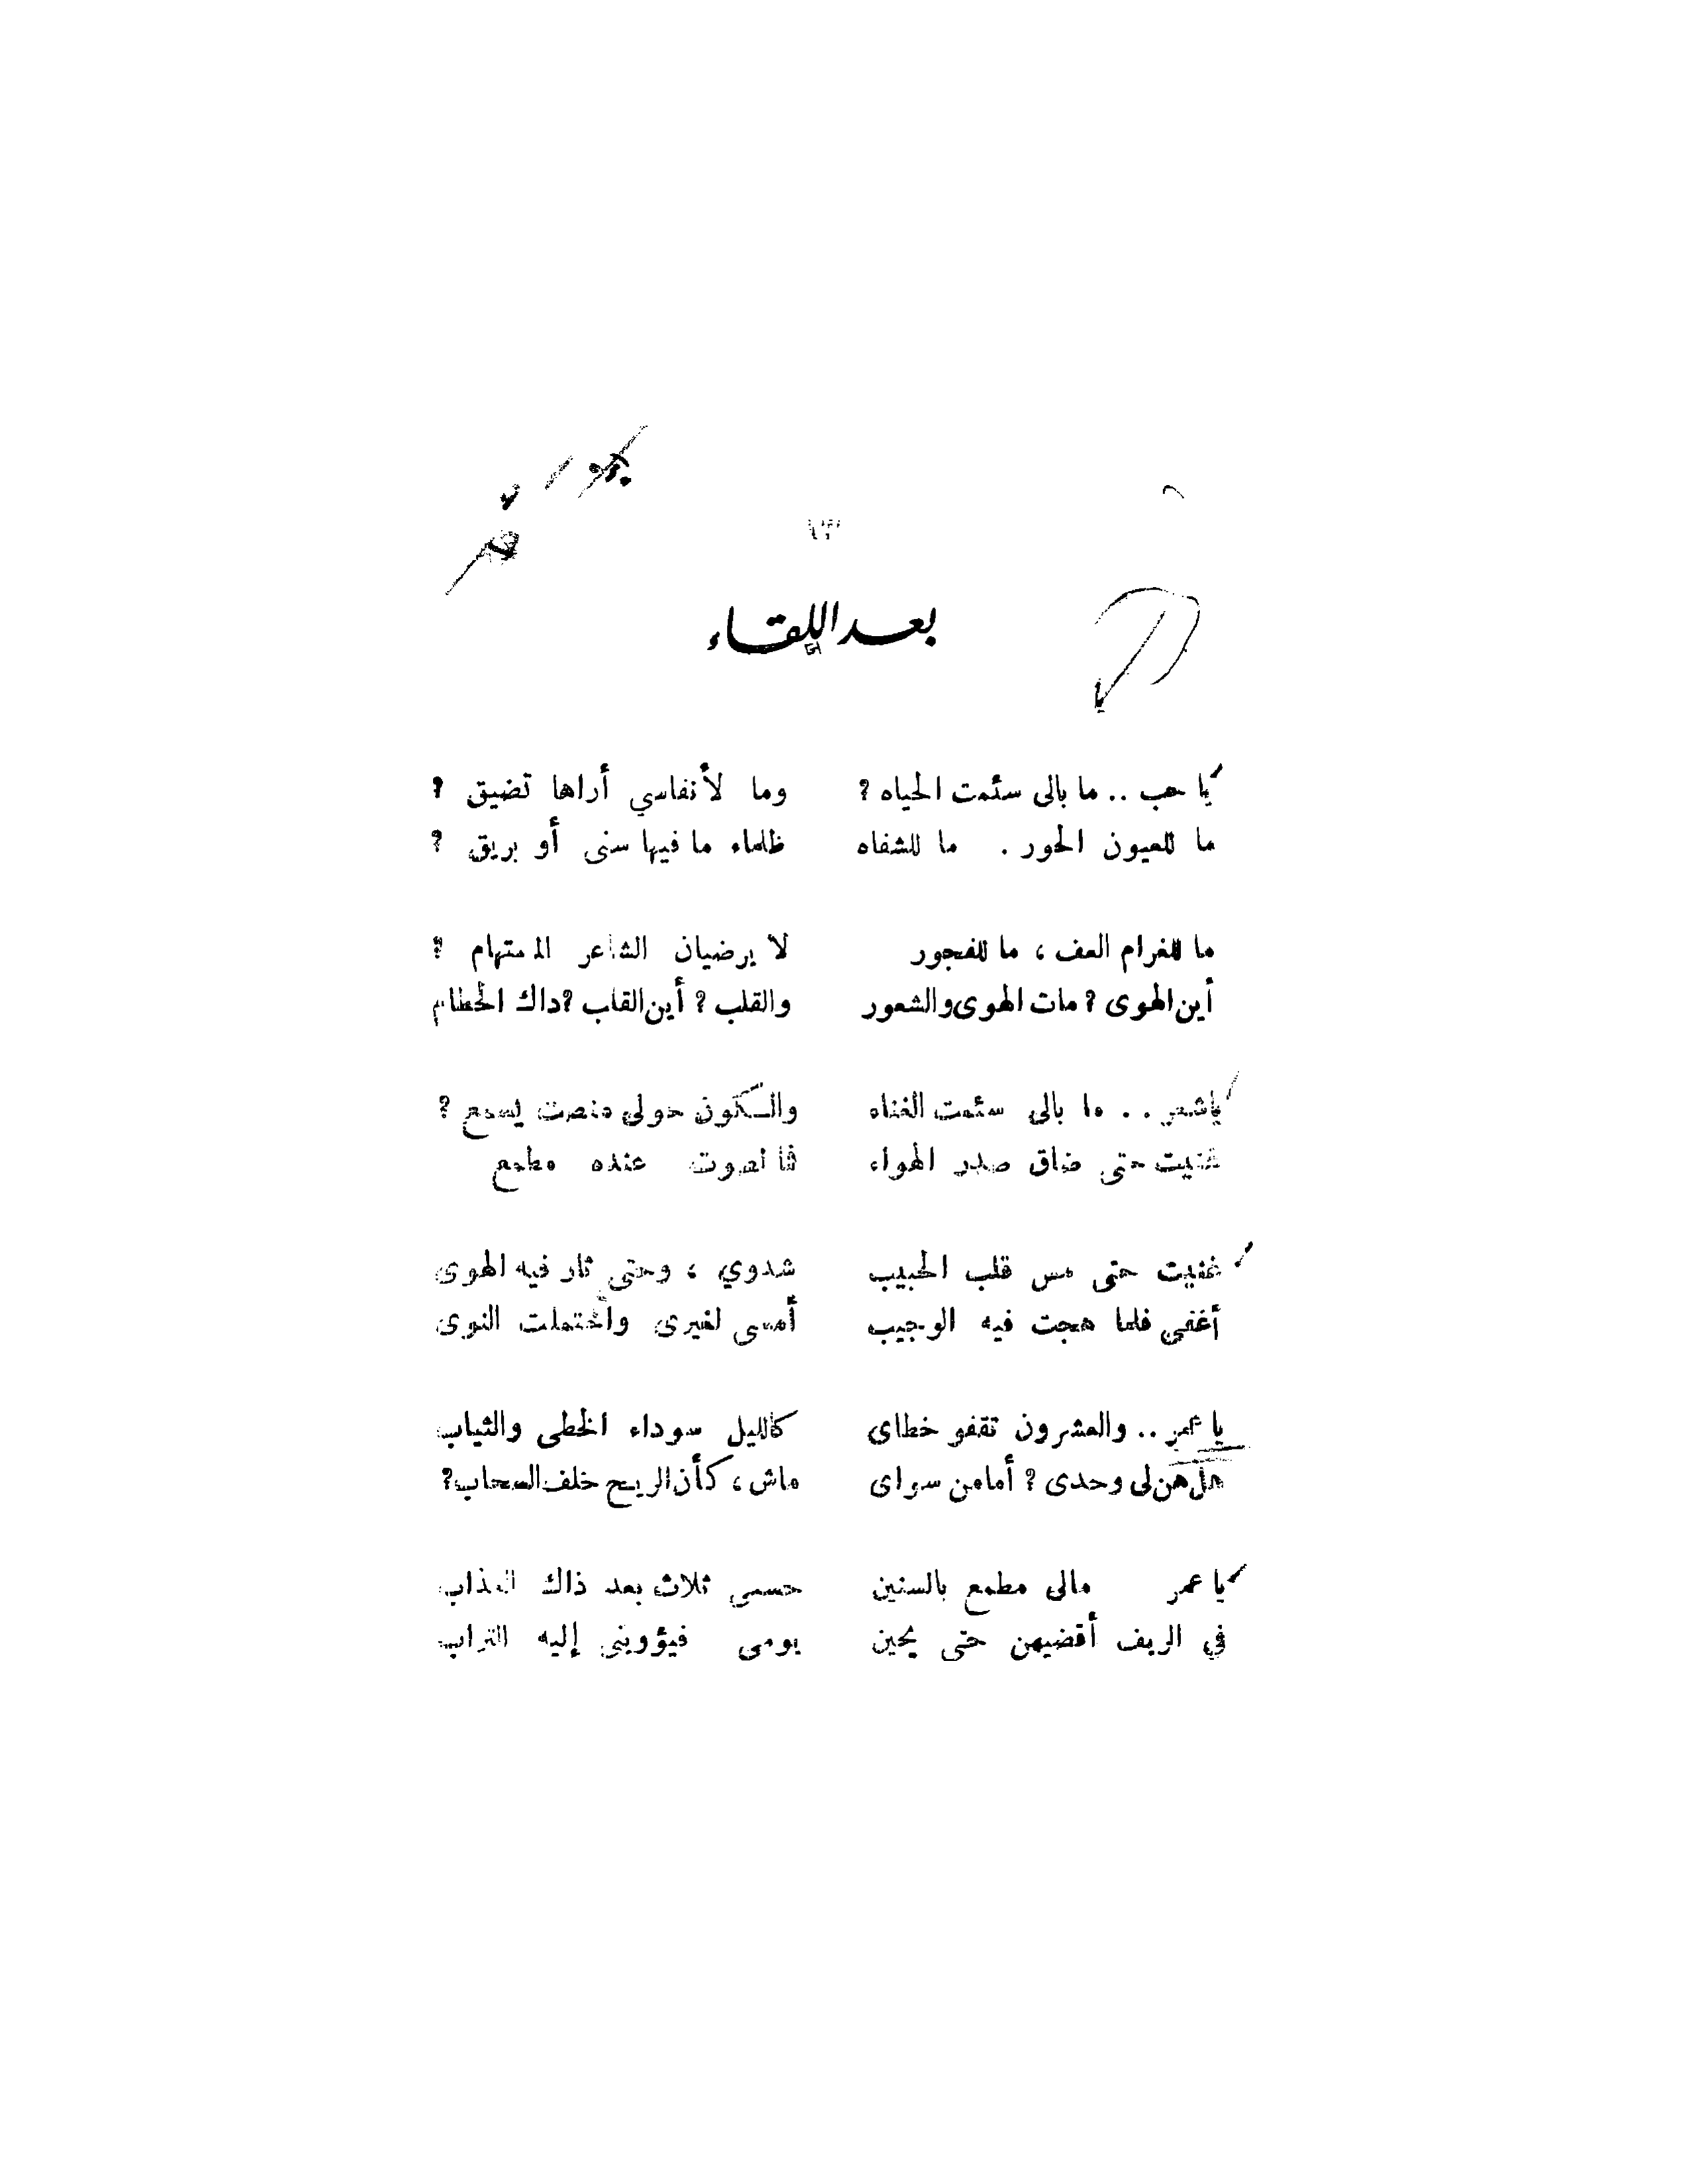 بعد اللقاء
يا حب .. ما بالى سئمت الحياه ؟ وما لأنفاسي أراها تضيق ؟
ما للعيون الحور . ما للشفاه ظلماء ما فيها سنى أو بريق ؟
ما للغرام العف ، ما للفجور لا يرضيان الشاعر المستهام ؟
أين الهوى ؟ مات الهوى والشعور والقلب ؟ أين القلب ؟ داك الحطام
يا شعر . . ما بالى سئمت الغناء والكون حولى منصت يسمع ؟
غنيت حتى ضاق صدر الهواء فما لصوت عنده مطمع
غنيت حتى مس قلب الحبيب شدوي ، وحتى ثار فيه الهوى
أغفى فلما هجت فيه الوجيب أمسى لغيرى واحتملت النوى
يا عمر .. والعشرون تقفو خطاى كالليل سوداء الخطى والثياب
هل هن لى وحدى ؟ أما من سواى ماش ، كأن الريح خلف السحاب ؟
يا عمر مالى مطمع بالسنين حسبى ثلاث بعد ذاك العذاب
في الريف أقضيهن حتى يحين يومى فيؤوينى إليه التراب